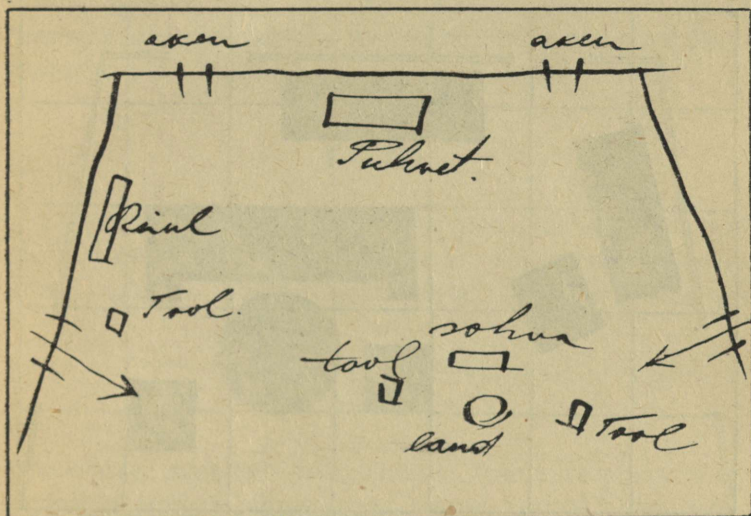 aken
aken
Puhvet.
Tool.
sohva
tool
laud
Tool